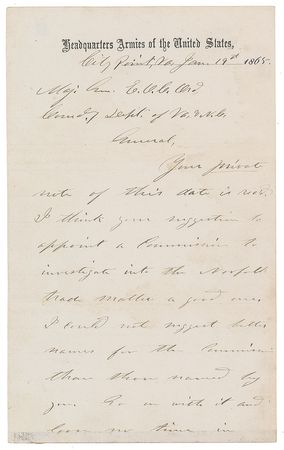 Headquarters Armies of the United States,
City Point, Va. Jan. 19th 1865.
Maj. Gen. E. O. C. Ord
Comd.g Dept. of Va. & N.C.
General,
Your private
note of this date is recd.
I think your suggestion to
appoint a Commission to
investigate into the Norfolk
trade matter a good one.
I could not suggest better
names for the Commission
than those named by
you. Go on with it and
loose no time in